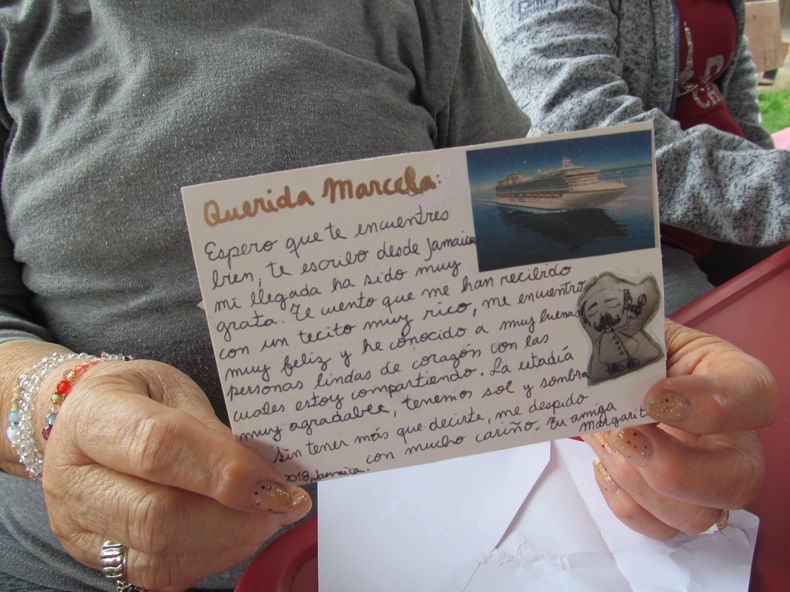 Querida Marcela:
Espero que te encuentres
bien, te escribo desde Jamaica
mi llegada ha sido muy
grata. Te cuento que me han recibido
con un tecito muy rico, me encuentro
muy feliz y he conocido a muy buenas
personas lindas de corazón con las
cuales estoy compartiendo. La estadía
muy agradable, tenemos sol y sombra
sin tener más que decirte, me despido
con mucho cariño. Tu amiga
Margarit
2018, Jamaica.